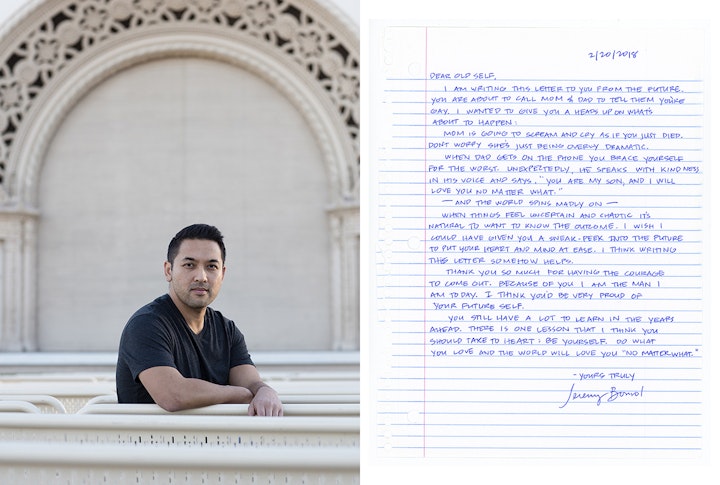 2/20/2018
DEAR OLD SELF,
I AM WRITING THIS LETTER TO YOU FROM THE FUTURE.
YOU ARE ABOUT TO CALL MOM & DAD TO TELL THEM YOU'RE
GAY. I WANTED TO GIVE YOU A HEADS UP ON WHAT'S
ABOUT TO HAPPEN:
MOM IS GOING TO SCREAM AND CRY AS IF YOU JUST DIED.
DONT WORRY SHE'S JUST BEING OVERLY DRAMATIC.
WHEN DAD GETS ON THE PHONE YOU BRACE YOURSELF
FOR THE WORST. UNEXPECTEDLY, HE SPEAKS WITH KINDNESS
IN HIS VOICE AND SAYS, "YOU ARE MY SON, AND I WILL
LOVE YOU NO MATTER WHAT."
— AND THE WORLD SPINS MADLY ON —
WHEN THINGS FEEL UNCERTAIN AND CHAOTIC IT'S
NATURAL TO WANT TO KNOW THE OUTCOME. I WISH I
COULD HAVE GIVEN YOU A SNEAK-PEEK INTO THE FUTURE
TO PUT YOUR HEART AND MIND AT EASE. I THINK WRITING
THIS LETTER SOMEHOW HELPS.
THANK YOU SO MUCH FOR HAVING THE COURAGE
TO COME OUT. BECAUSE OF YOU I AM THE MAN I
AM TODAY. I THINK YOU'D BE VERY PROUD OF
YOUR FUTURE SELF.
YOU STILL HAVE A LOT TO LEARN IN THE YEARS
AHEAD. THERE IS ONE LESSON THAT I THINK YOU
SHOULD TAKE TO HEART: BE YOURSELF. DO WHAT
YOU LOVE AND THE WORLD WILL LOVE YOU "NO MATTER WHAT."
- YOURS TRULY
Jeremy